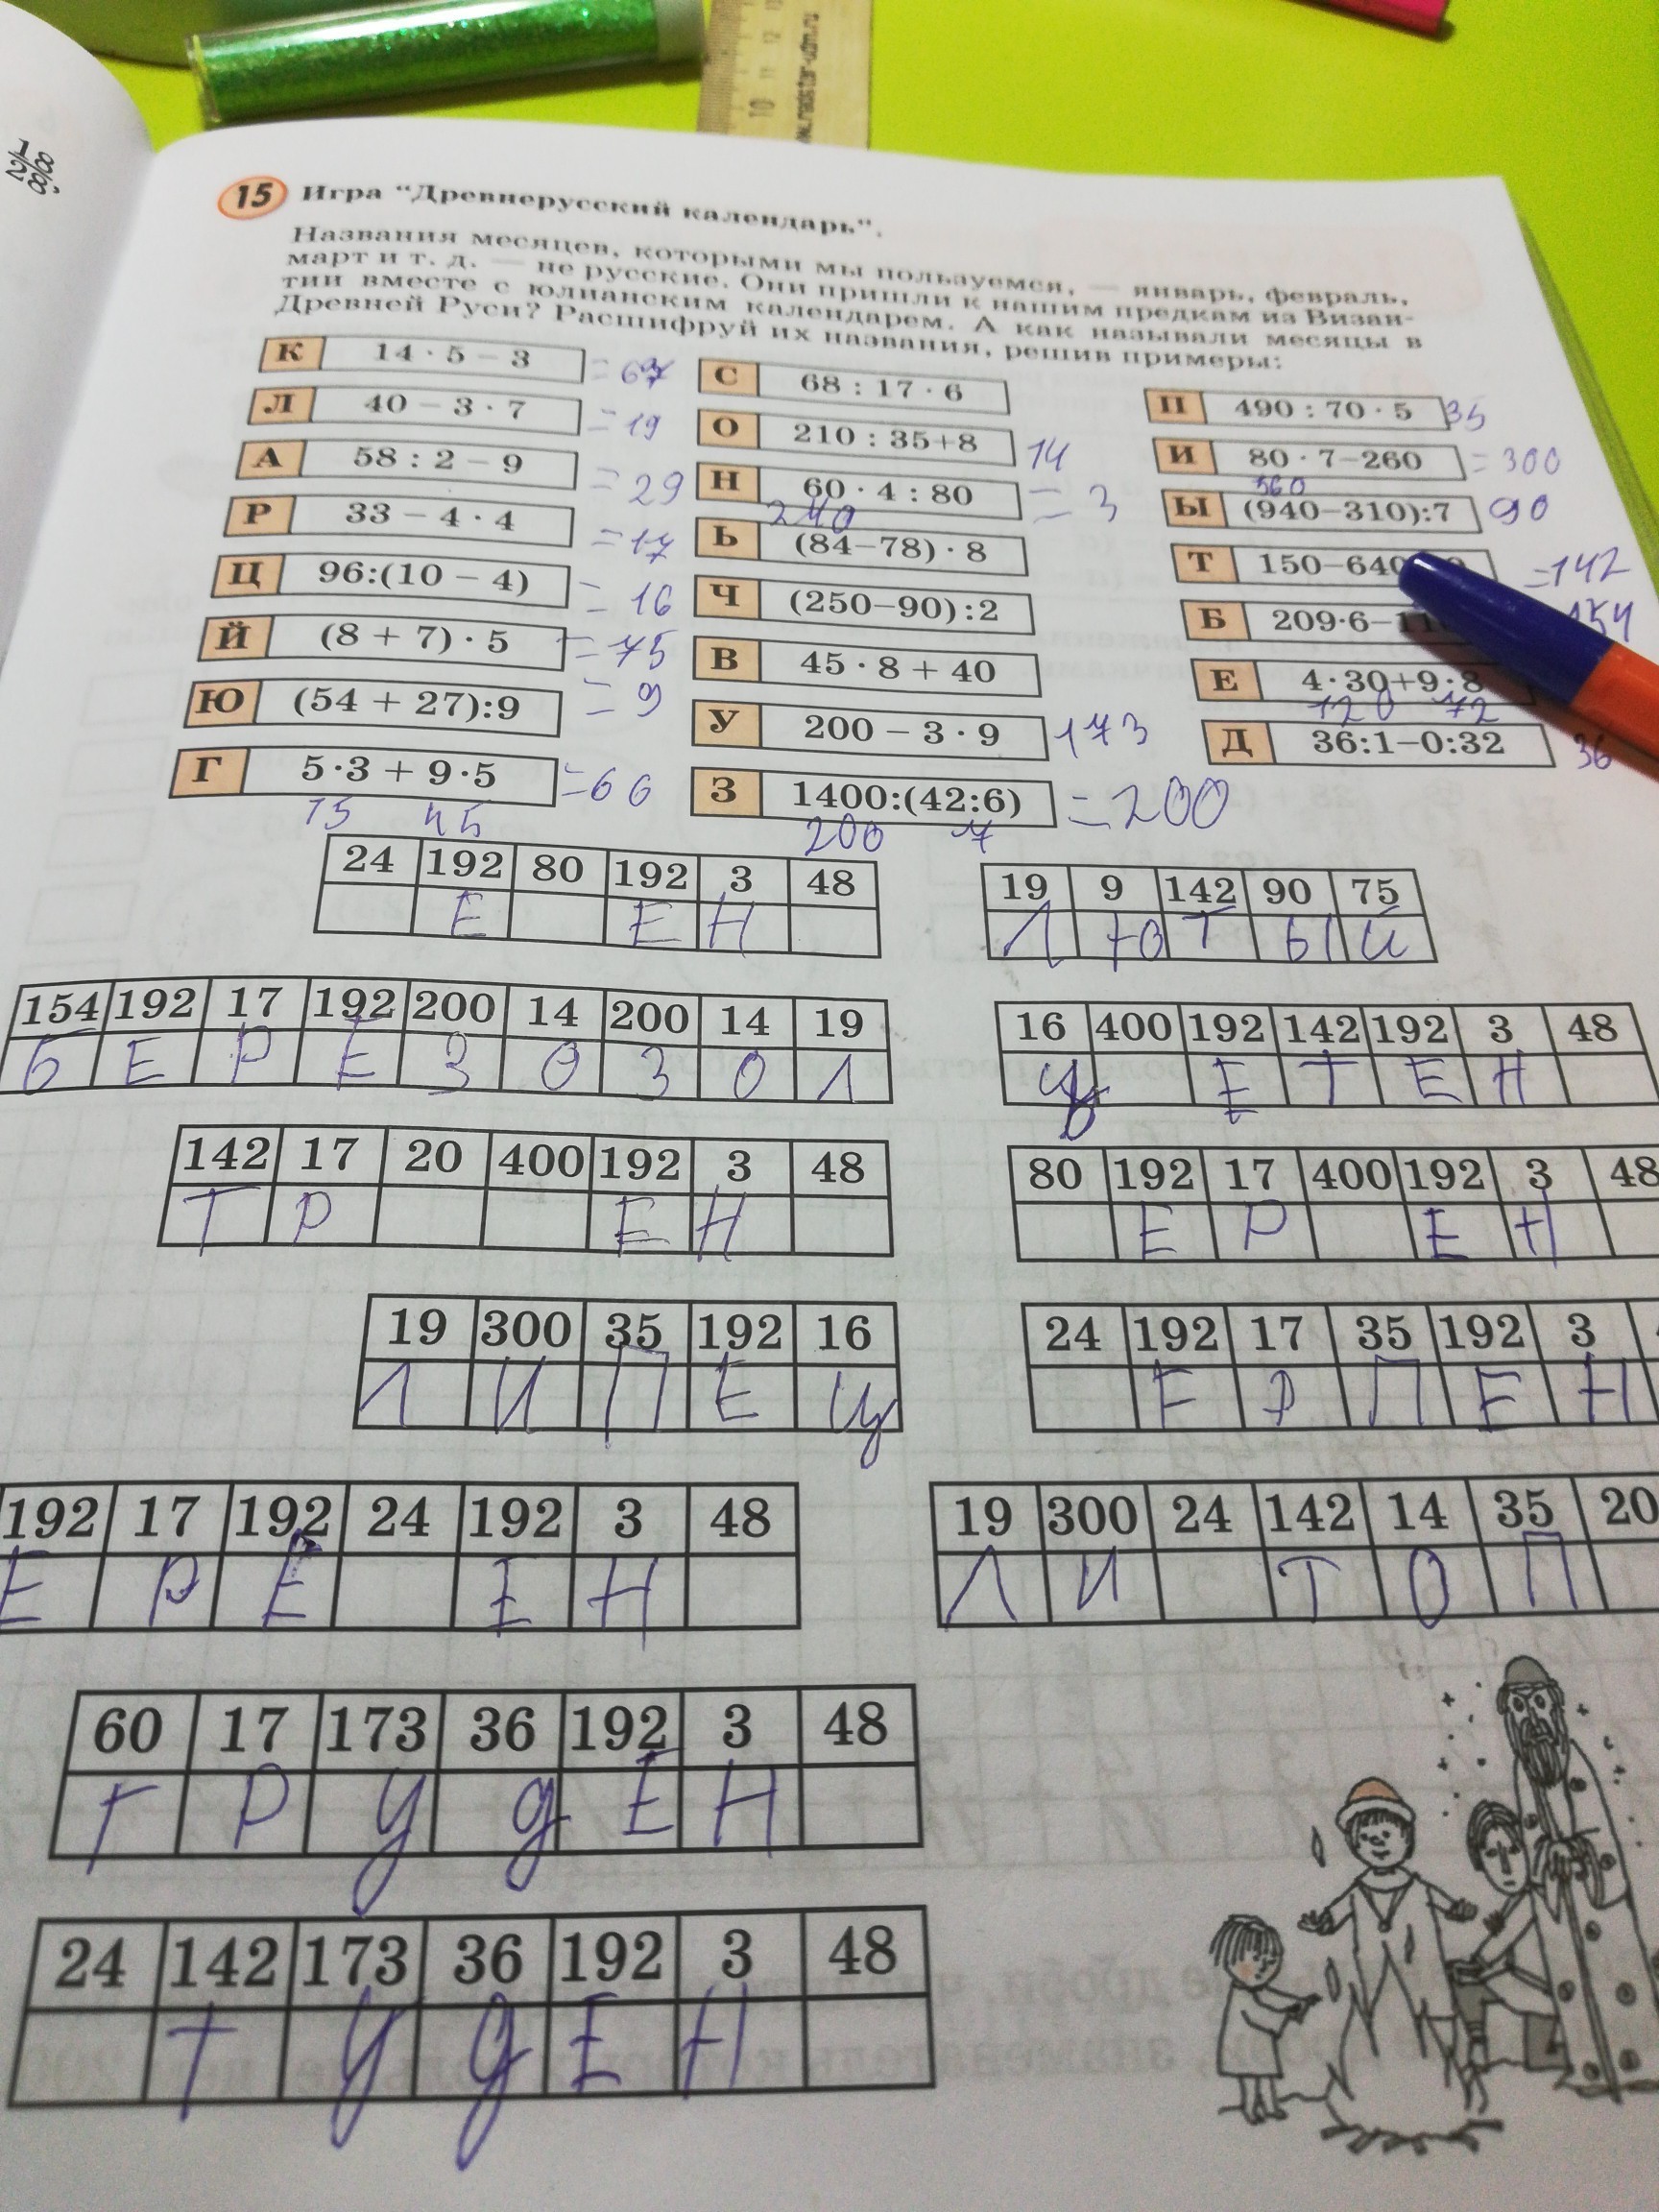 10 11 12 13
15 Игра "Древнерусский календарь".
Названия месяцев, которыми мы пользуемся, — январь, февраль,
март и т. д. — не русские. Они пришли к нашим предкам из Визан-
тии вместе с юлианским календарем. А как называли месяцы в
Древней Руси? Расшифруй их названия, решив примеры:
К 14 · 5 – 3 = 67
Л 40 – 3 · 7 = 19
А 58 : 2 – 9 = 29
Р 33 – 4 · 4 = 17
Ц 96:(10 – 4) = 16
Й (8 + 7) · 5 = 75
Ю (54 + 27):9 = 9
Г 5·3 + 9·5 = 66
15 45
С 68 : 17 · 6
О 210 : 35+8 14
Н 60 · 4 : 80 = 3
240
Ь (84–78) · 8
Ч (250–90):2
В 45 · 8 + 40
У 200 – 3 · 9 173
З 1400:(42:6) = 200
200 7
П 490 : 70 · 5 35
И 80 · 7–260 = 300
560
Ы (940–310):7 90
Т 150–640 =142
Б 209·6– 154
Е 4·30+9·8
120 72
Д 36:1–0:32 36
24 192 80 192 3 48
Е Е Н
19 9 142 90 75
Л Ю Т Ы Й
154 192 17 192 200 14 200 14 19
Б Е Р Е З О З О Л
16 400 192 142 192 3 48
Ц Е Т Е Н
142 17 20 400 192 3 48
Т Р Е Н
80 192 17 400 192 3 48
Е Р Е Н
19 300 35 192 16
Л И П Е Ц
24 192 17 35 192 3
Е Р П Е Н
192 17 192 24 192 3 48
Е Р Е Е Н
19 300 24 142 14 35 20
Л И Т О П
60 17 173 36 192 3 48
Г Р У Д Е Н
24 142 173 36 192 3 48
Т У Д Е Н